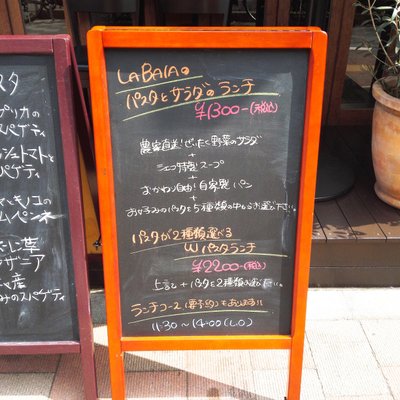 LA BAIAの
パスタとサラダのランチ
¥1300-(税込)
農家直送!ぜいたく野菜のサラダ
+
シェフ特製スープ
+
おかわり自由!自家製パン
+
お好みのパスタを5種類の中からお選び下さい。
パスタが2種類選べる
Wパスタランチ
¥2200-(税込)
上記+パスタを2種類お選び下さい。
ランチコース(要予約)もあります!!
11:30~14:00(L.O)
スタ
プリカの
スパゲティ
トマトと
パゲティ
キノコの
ムペンネ
ザニア
産
みのスパゲティ